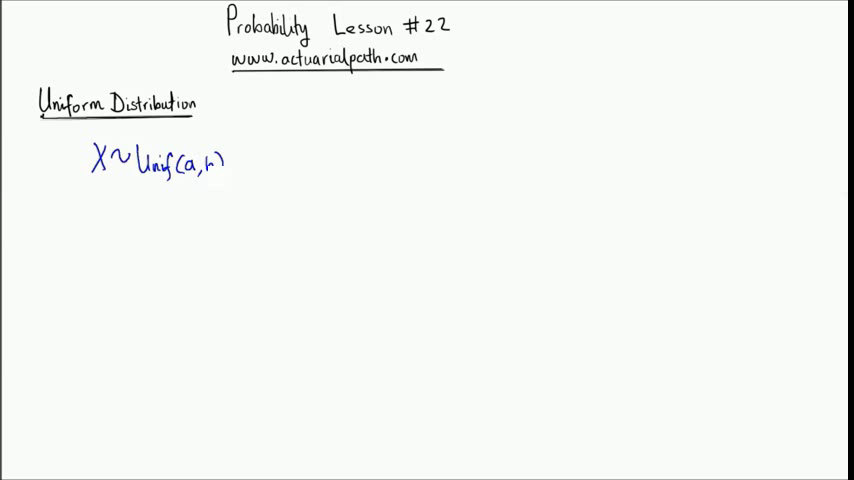 Probability Lesson #22
www.actuarialpath.com
Uniform Distribution
X~Unif(a,h)